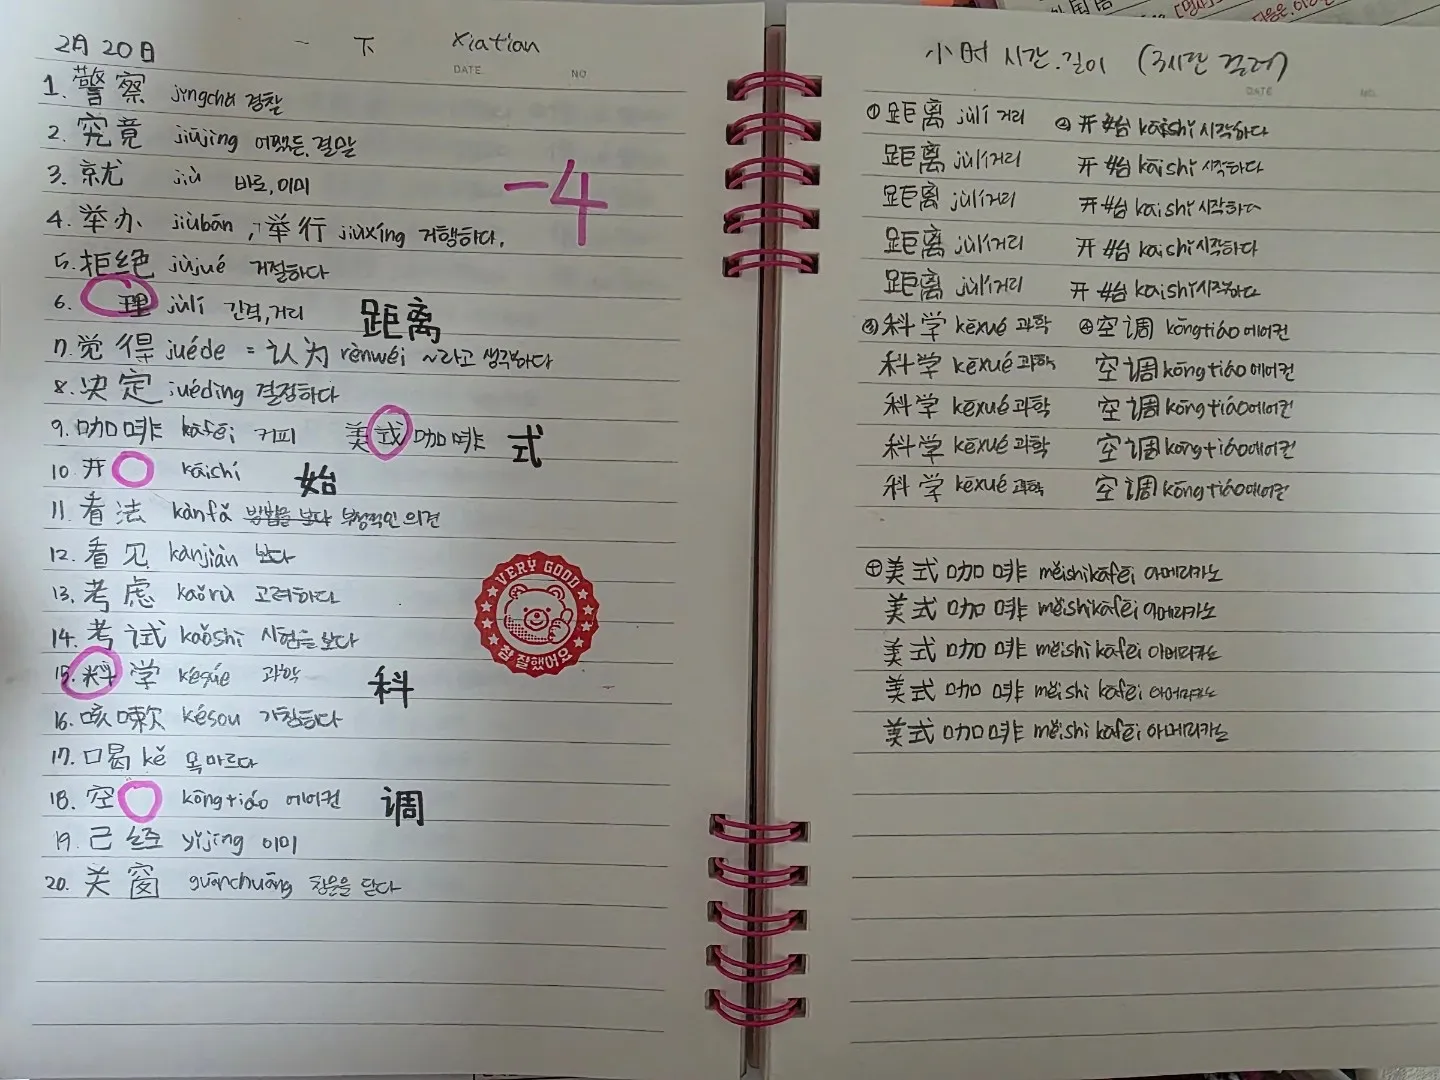 2月 20日 一 下 Xiatian
DATE NO
1. 警察 jǐngchá 경찰
2. 究竟 jiūjìng 어쨌든, 결말
3. 就 jiù 바로, 이미
4. 举办 jiùbān, 举行 jiùxíng 거행하다.
-4
5. 拒绝 jùjué 거절하다
6. 理 jùlí 간격, 거리 距离
7. 觉得 juéde = 认为 rènwéi ~라고 생각하다
8. 决定 juédìng 결정하다
9. 咖啡 kāfēi 커피 美式咖啡 式
10. 开 kāishí 始
11. 看法 kànfǎ 방법을 보다 부정적인 의견
12. 看见 kànjiàn 보다
13. 考虑 kǎorù 고려하다
14. 考试 kǎoshì 시험을 보다
15. 科学 késúe 과학 科
16. 咳嗽 késou 기침하다
17. 口渴 kě 목마르다
18. 空 kōngtiáo 에어컨 调
19. 已经 yǐjīng 이미
20. 关窗 guānchuāng 창문을 닫다
VERY GOOD
참 잘했어요
小时 시간.길이 (3시간 걸려)
DATE NO.
① 距离 jùlí 거리 ② 开始 kāishǐ 시작하다
距离 jùlí 거리 开始 kāishǐ 시작하다
距离 jùlí 거리 开始 kāishǐ 시작하다
距离 jùlí 거리 开始 kāishǐ 시작하다
距离 jùlí 거리 开始 kāishǐ 시작하다
③ 科学 kēxué 과학 ④ 空调 kōngtiáo 에어컨
科学 kēxué 과학 空调 kōngtiáo 에어컨
科学 kēxué 과학 空调 kōngtiáo 에어컨
科学 kēxué 과학 空调 kōngtiáo 에어컨
科学 kēxué 과학 空调 kōngtiáo 에어컨
⊕ 美式咖啡 měishìkāfēi 아메리카노
美式咖啡 měishìkāfēi 아메리카노
美式咖啡 měishì kāfēi 아메리카노
美式咖啡 měishì kāfēi 아메리카노
美式咖啡 měishì kāfēi 아메리카노